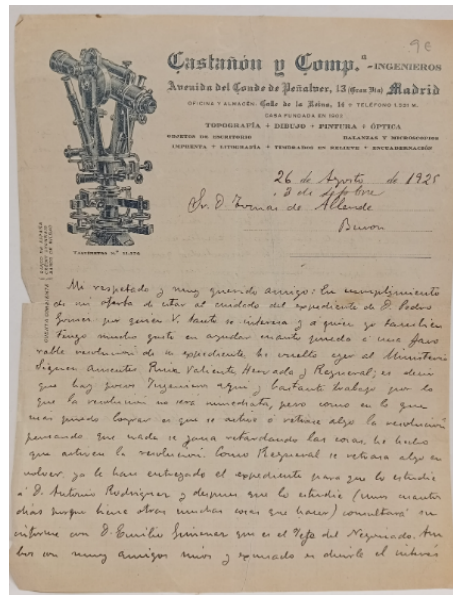 9€
Castañón y Comp.ª - INGENIEROS
Avenida del Conde de Peñalver, 13 (Gran Vía) Madrid
OFICINA Y ALMACÉN: Calle de la Reina, 14 TELÉFONO 1.521 M.
CASA FUNDADA EN 1902
TOPOGRAFÍA DIBUJO PINTURA ÓPTICA
OBJETOS DE ESCRITORIO BALANZAS Y MICROSCOPIOS
IMPRENTA LITOGRAFÍA TIMBRADOS EN RELIEVE ENCUADERNACIÓN
26 de Agosto de 1925
Sr. D. Tomas de Allende
Burón
TAQUIMETRO N.º
CUENTA CORRIENTE
BANCO DE ESPAÑA
BANCO DE BILBAO
Mi respetado y muy querido amigo: En cumplimiento
de mi oferta de estar al cuidado del expediente de D. Pedro
Gomez por quien V. tanto se interesa y á quien yo tambien
tengo mucho gusto en ayudar cuanto pueda á una favo
rable resolución de su expediente, he vuelto ayer al Ministerio
Siguen ausentes Ruiz Valiente y Requeral; es decir
que hay pocos Ingenieros aqui y bastante trabajo por lo
que la resolución no será inmediata, pero como en lo que
mas puedo lograr es que se active ó retrase algo la resolución
pensando que nada se gana retardando las cosas, he hecho
que activen la resolución. Como Requeral se retrasa algo en
volver, ya le han entregado el expediente para que lo estudie
á D. Antonio Rodriguez y despues que lo estudie (unos cuantos
dias porque tiene otras muchas cosas que hacer) consultará su
informe con D. Emilio Gimenez que es el Jefe del Negociado. Am
bos son muy amigos mios y excusado es decirle el interés